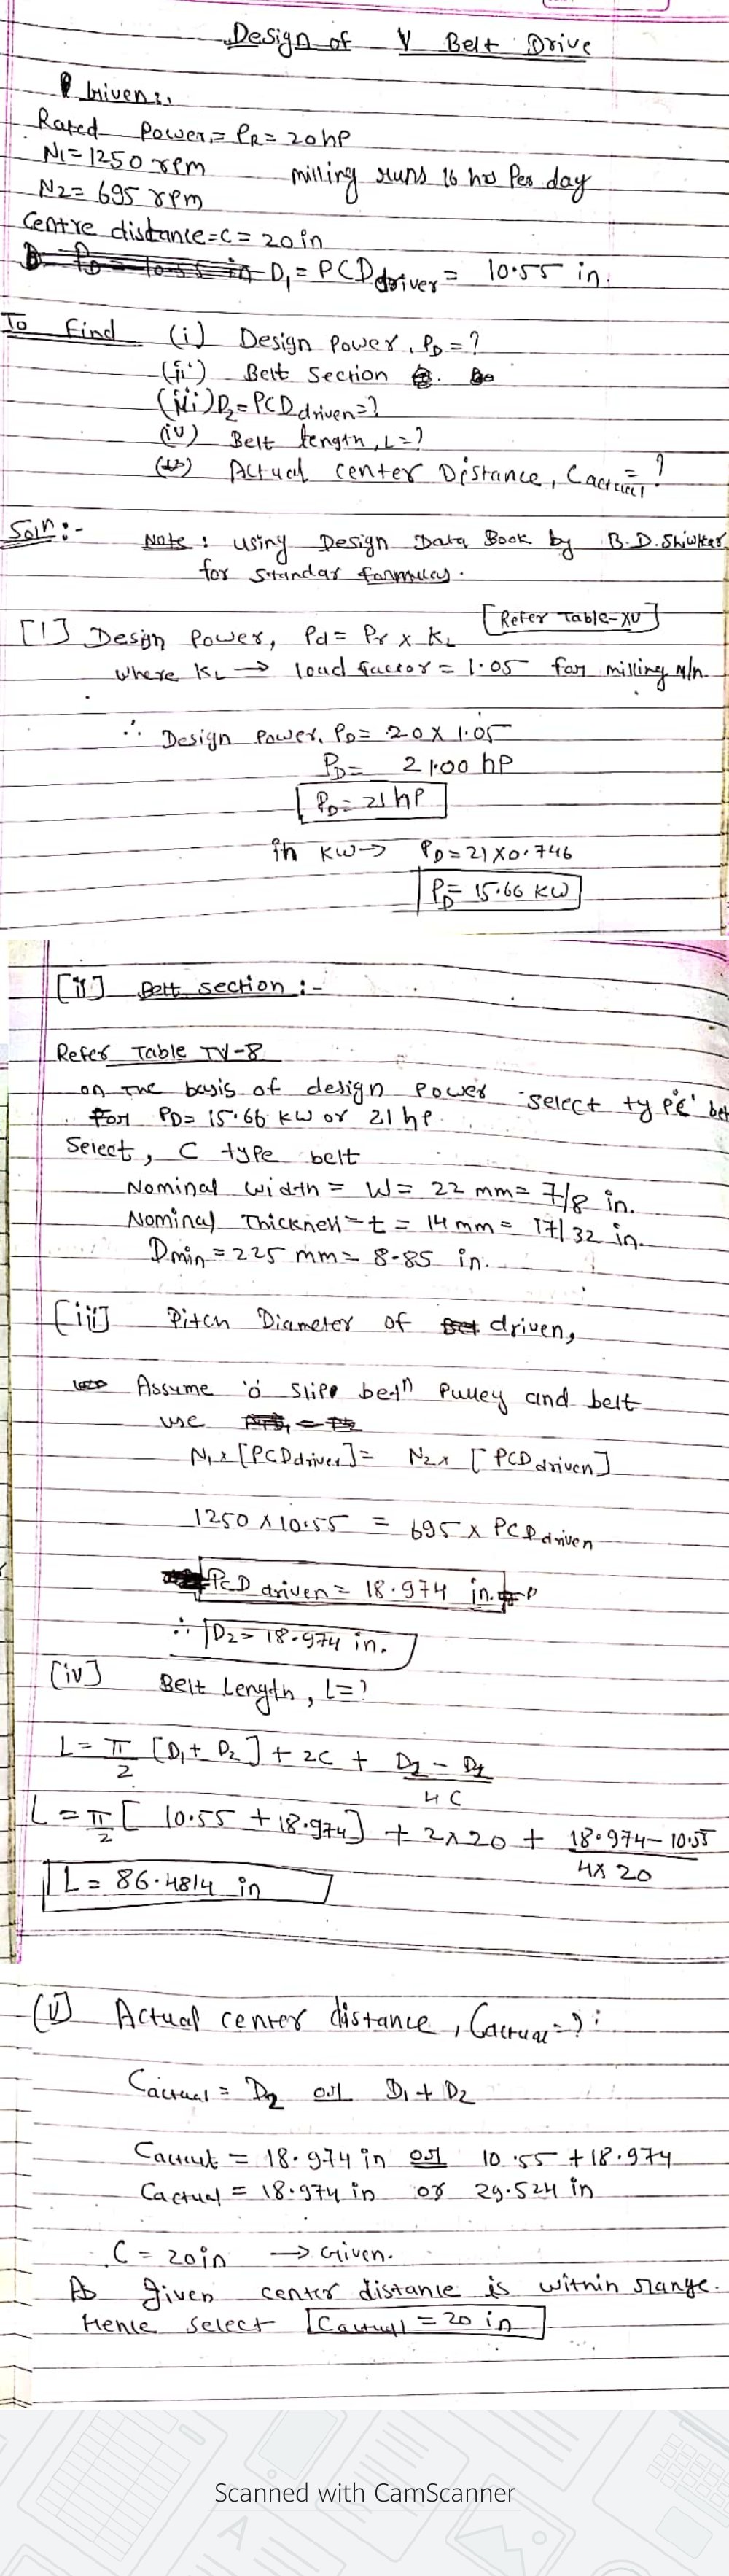 Design of V Belt Drive
Given:.
Rated Power = PR = 20hp
N1 = 1250 rpm milling runs 16 hrs Per day
N2 = 695 rpm
Centre distance = C = 20in
D1 = PCD driver = 10.55 in.
To Find (i) Design Power, PD = ?
(ii) Belt Section
(iii) D2 = PCD driven = ?
(iv) Belt length, L = ?
Actual center Distance, Cactual = ?
Soln :- Note : using Design Data Book by B.D. Shiwlkar
for standar formulas.
[I] Design Power, Pd = Pr x KL [Refer Table-XV]
where KL → load factor = 1.05 for milling M/n.
∴ Design Power, PD = 20 x 1.05
PD = 21.00 hp
PD = 21 hp
in KW → PD = 21 x 0.746
PD = 15.66 KW
[ii] Belt section :-
Refer Table IV-8
on the basis of design power select type 'c' bet
for PD = 15.66 KW or 21 hp.
Select, C type belt
Nominal width = W = 22 mm = 7/8 in.
Nominal Thickness = t = 14 mm = 17/32 in.
Dmin = 225 mm = 8.85 in.
[iii] Pitch Diameter of driven,
Assume 'o' slip betn Pulley and belt
use
N1 x [PCD driver] = N2 x [PCD driven]
1250 x 10.55 = 695 x PCD driven
PCD driven = 18.974 in.
∴ D2 = 18.974 in.
[iv] Belt Length, L = ?
L = π/2 [D1 + D2] + 2C + D2 - D1 / 4C
L = π/2 [10.55 + 18.974] + 2x20 + 18.974 - 10.55 / 4x20
L = 86.4814 in
[v] Actual center distance, Cactual = ? :
Cactual = D2 or D1 + D2
Cactual = 18.974 in or 10.55 + 18.974
Cactual = 18.974 in or 29.524 in
C = 20in → Given.
As given center distance is within range.
Hence select Cactual = 20 in
Scanned with CamScanner